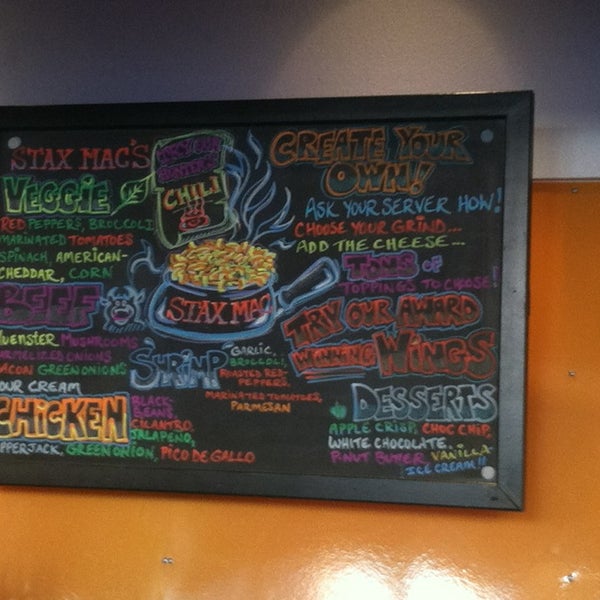 STAX MAC'S
VEGGIE
RED PEPPERS, BROCCOLI
MARINATED TOMATOES
SPINACH, AMERICAN-
CHEDDAR, CORN
BEEF
MUENSTER MUSHROOMS
CARMELIZED ONIONS
BACON GREEN ONIONS
SOUR CREAM
CHICKEN
BLACK
BEANS,
CILANTRO,
JALAPENO,
PEPPERJACK, GREEN ONION, PICO DE GALLO
TRY OUR
CHILI
STAX MAC
SHRIMP
GARLIC,
BROCCOLI,
ROASTED RED
PEPPERS,
MARINATED TOMATOES,
PARMESAN
CREATE YOUR
OWN!!
ASK YOUR SERVER HOW!
CHOOSE YOUR GRIND...
ADD THE CHEESE...
TONS OF
TOPPINGS TO CHOOSE!
TRY OUR AWARD
WINNING WINGS
DESSERTS
APPLE CRISP, CHOC CHIP,
WHITE CHOCOLATE,
P.NUT BUTTER VANILLA
ICE CREAM!!